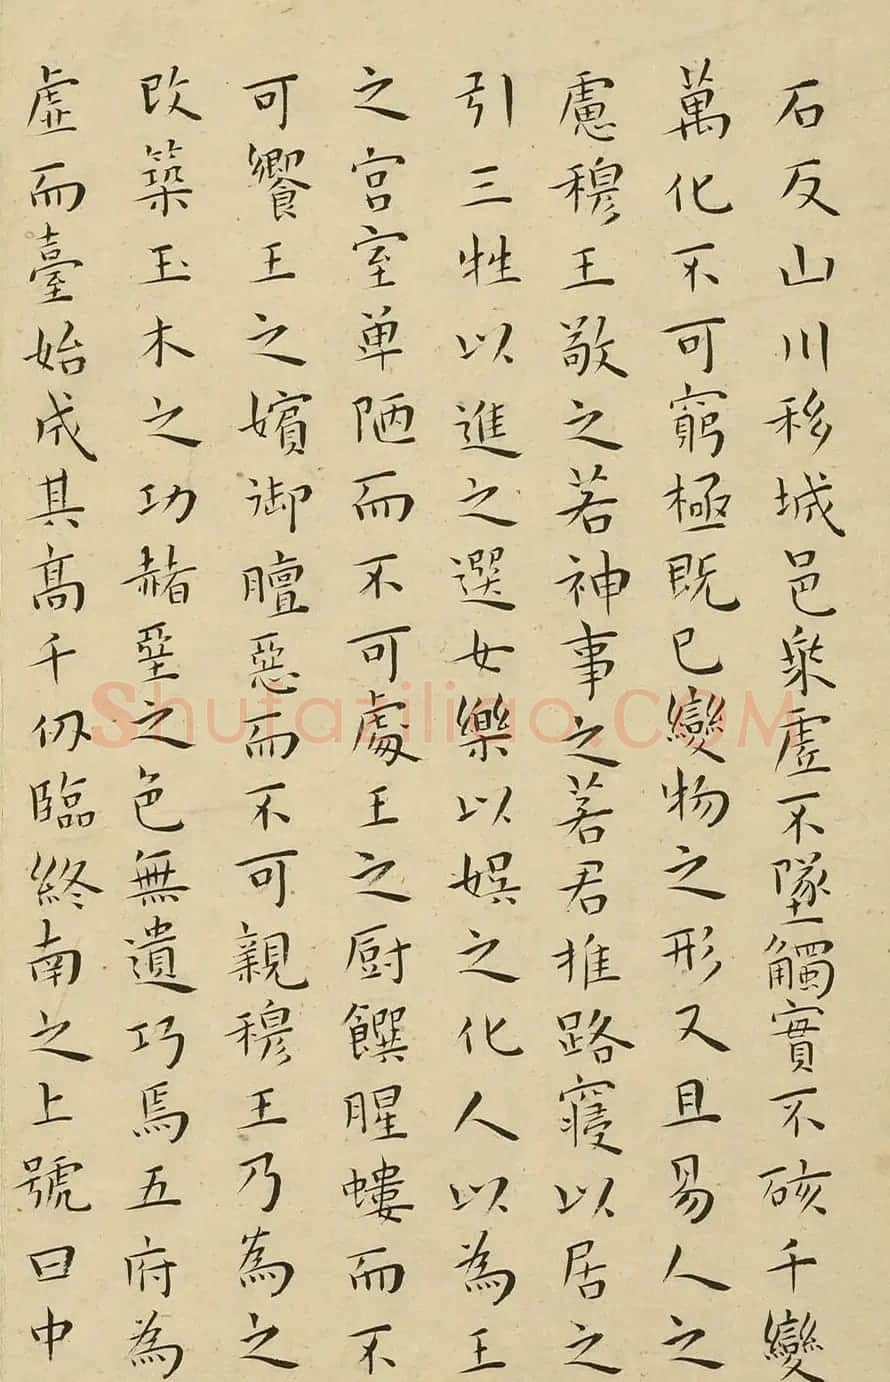 石反山川移城邑椉虛不墜觸實不硋千變
萬化不可窮極既已變物之形又且易人之
慮穆王敬之若神事之若君推路寢以居之
引三牲以進之選女樂以娛之化人以為王
之宮室卑陋而不可處王之厨饌腥螻而不
可饗王之嬪御膻惡而不可親穆王乃為之
改築玉木之功赭堊之色無遺巧焉五府為
虛而臺始成其高千仞臨終南之上號曰中
Shufaziliao.COM